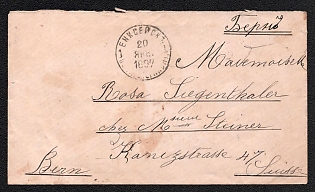 Бернъ
ЕНИСЕЙСК
20
ЯНВ.
1899
Mademoiselle
Rosa Siegenthaler
chez Mme Steiner
Kanezstrasse 47
Bern
Suisse